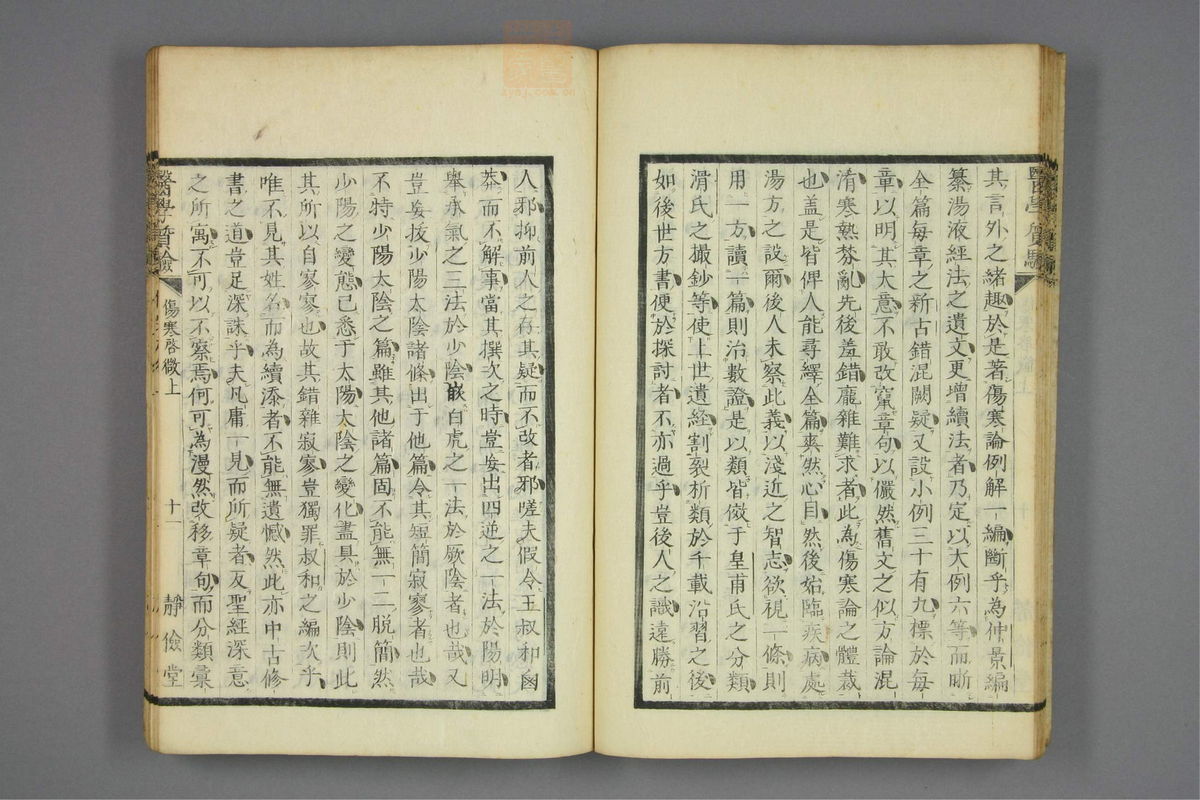 其言外之緒趣於是著傷寒論例解一編斷乎為仲景編
纂湯液經法之遺文更增續法者乃定以大例六等而晰
全篇每章之新古錯混闕疑又設小例三十有九標於每
章以明其大意不敢改竄章句以儼然舊文之似方論混
淆寒熱棼亂先後羞錯龐雜難求者此為傷寒論之體裁
也盖是皆俾人能尋繹全篇爽然心目然後始臨疾病處
湯方之設爾後人未察此義以淺近之智志欲視一條則
用一方讀一篇則治數證是以類皆倣于皇甫氏之分類
滑氏之撮鈔等使上世遺經割裂析類於千載沿習之後
如後世方書便於探討者不亦過乎豈後人之識遠勝前
人邪抑前人之存其疑而不改者邪嗟夫假令王叔和鹵
莽而不解事當其撰次之時豈妄出四逆之一法於陽明
舉承氣之三法於少陰嵌白虎之一法於厥陰者也哉又
豈妄拔少陽太陰諸條出于他篇令其短簡寂寥者也哉
不特少陽太陰之篇雖其他諸篇固不能無一二脫簡然
少陽之變態已悉于太陽太陰之變化盡具於少陰則此
其所以自寥寥也故其錯雜寂寥豈獨罪叔和之編次乎
唯不見其姓名而為續添者不能無遺憾然此亦中古修
書之道豈足深誅乎夫凡庸一見而所疑者友聖經深意
之所寓不可以不察焉何可為漫然改移章句而分類彙
醫學質驗
傷寒啓微上
十一
靜儉堂